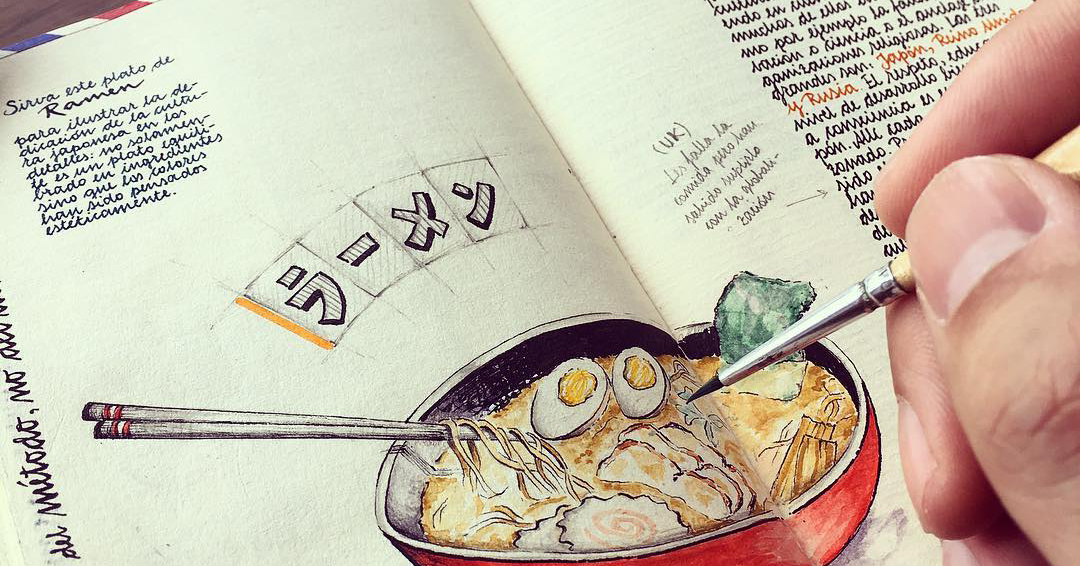 Sirva este plato de
Ramen
para ilustrar la de-
dicación de la cultu-
ra japonesa en los
detalles: no solamen-
te es un plato equili-
brado en ingredientes
sino que los colores
han sido pensados
estéticamente.
ラーメン
del método, no
(UK)
Les falla la
comida pero han
sabido suplirlo
con la globali-
zación
muchos de ellos
mo por ejemplo la
vación o ciencia o el
ganizaciones religiosas. Los tres
grandes son: Japón, Reino Unido
y Rusia. El respeto, educa
nivel de desarrollo
a consecuencia es
pón. Allí cada